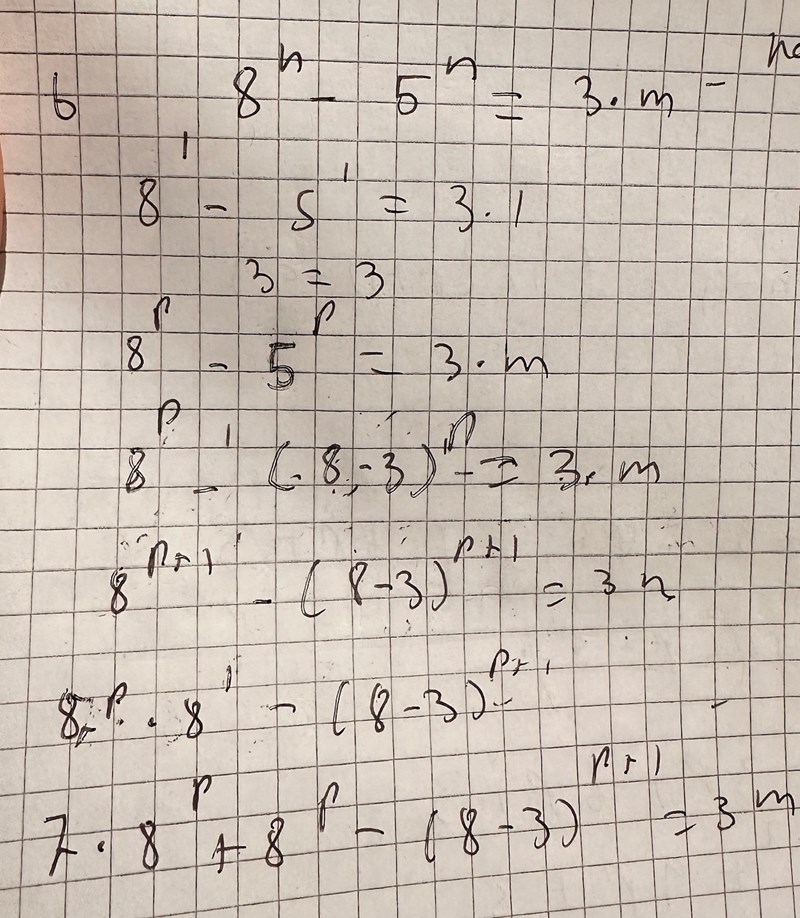 6 8ⁿ - 5ⁿ = 3·m -
8¹ - 5¹ = 3·1
3 = 3
8ᵖ - 5ᵖ = 3·m
8ᵖ - (8-3)ᵖ = 3·m
8ᵖ⁺¹ - (8-3)ᵖ⁺¹ = 3n
8ᵖ·8¹ - (8-3)ᵖ⁺¹ -
7·8ᵖ + 8ᵖ - (8-3)ᵖ⁺¹ = 3m